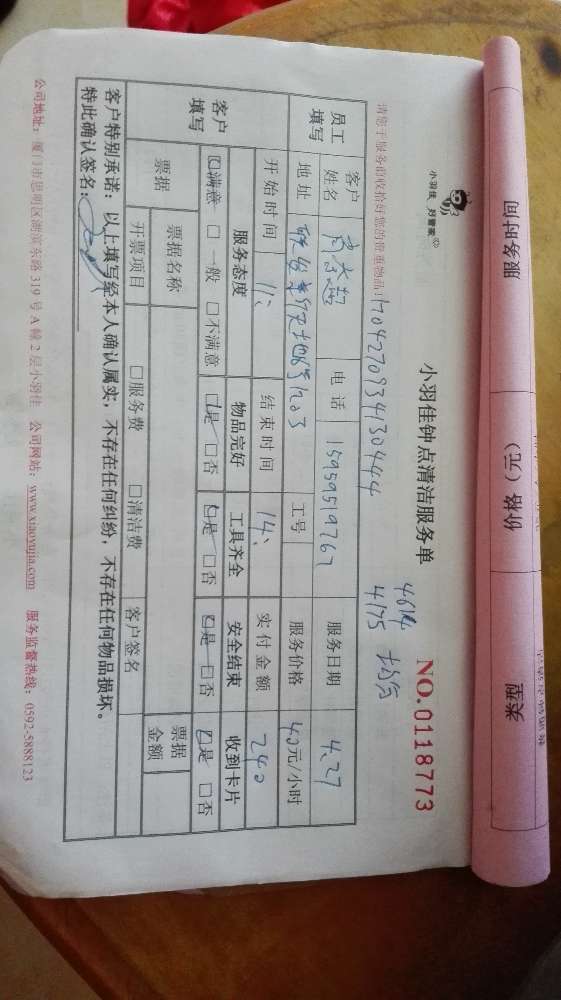 服务时间 价格（元） 类型
小羽佳 好管家
小羽佳钟点清洁服务单 NO.0118773
请您于服务前收拾好您的贵重物品! 1704270934130444
4614
4175 均分
员工填写 客户姓名 电话 15959519767 服务日期 4.27
地址 1203 工号 服务价格 40元/小时
客户填写 开始时间 11: 结束时间 14: 实付金额 240
服务态度 物品完好 工具齐全 安全结束 收到卡片
☑满意 □一般 □不满意 ☑是 □否 ☑是 □否 ☑是 □否 ☑是 □否
票据 票据名称 票据金额
开票项目 □服务费 □清洁费 客户签名
客户特别承诺：以上填写经本人确认属实，不存在任何纠纷，不存在任何物品损坏。
特此确认签名:
公司地址：厦门市思明区湖滨东路319号A幢2层小羽佳 公司网站：www.xiaoyujia.com 服务监督热线：0592-5888123